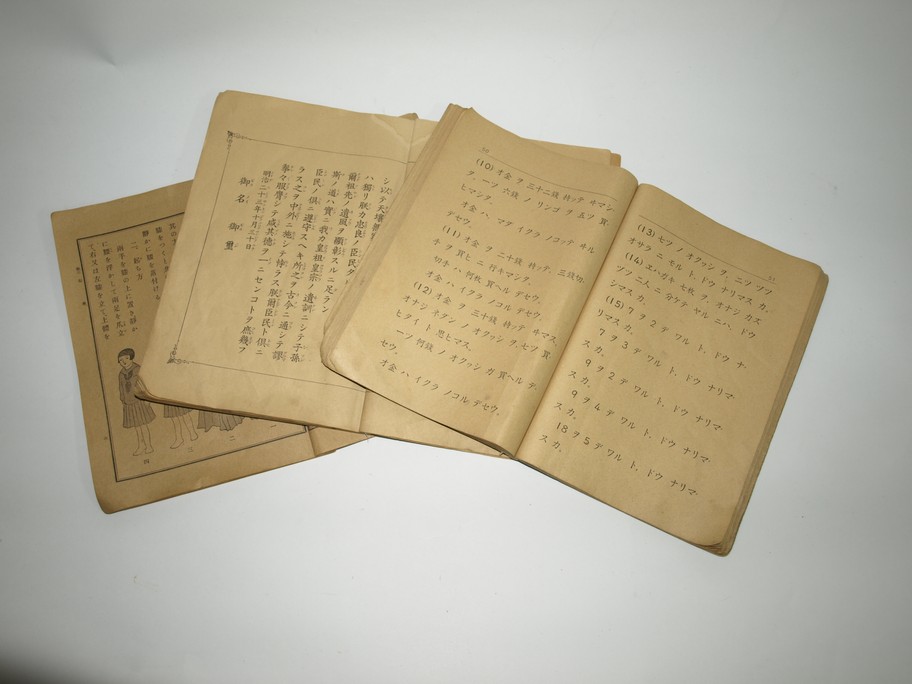 50
(10) オ金 ヲ 三十二銭 持ッテ ヰマシ
タ。一ツ 六銭 ノ リンゴ ヲ 五ツ 買
ヒマシタ。
オ金 ハ、マダ イクラ ノコッテ ヰル
デセウ。
(11) オ金 ヲ 二十銭 持ッテ、三銭切
手 ヲ 買ヒ ニ 行キマシタ。
切手 ハ 何枚 買ヘル デセウ。
オ金 ハ イクラ ノコル デセウ。
(12) オ金 ヲ 三十銭 持ッテ ヰマス。
オナジ ネダン ノ オクヮシ ヲ 七ツ 買
ヒタイ ト 思ヒマス。
一ツ 何銭 ノ オクヮシ ガ 買ヘル デ
セウ。
オ金 ハ イクラ ノコル デセウ。
51
(13) 七ツ ノ オクヮシ ヲ 二ツ ヅツ
オサラ ニ モル ト、ドウ ナリマス カ。
(14) ヱハガキ 七枚 ヲ、オナジ カズ
ヅツ 二人 ニ 分ケテ ヤル ニハ、ドウ
シマス カ。
(15) 7 ヲ 2 デ ワル ト、ドウ ナ
リマス カ。
7 ヲ 3 デ ワル ト、ドウ ナリマ
スカ。
9 ヲ 2 デ ワル ト、ドウ ナリマ
スカ。
9 ヲ 4 デ ワル ト、ドウ ナリマ
スカ。
18 ヲ 5 デ ワル ト、ドウ ナリマ
スカ。
シ以テ天壤無
ハ獨リ朕カ忠良ノ臣民タ
爾祖先ノ遺風ヲ顯彰スルニ足ラン
斯ノ道ハ實ニ我カ皇祖皇宗ノ遺訓ニシテ子孫
臣民ノ俱ニ遵守スヘキ所之ヲ古今ニ通シテ謬
ラス之ヲ中外ニ施シテ悖ラス朕爾臣民ト俱ニ
拳々服膺シテ咸其德ヲ一ニセンコトヲ庶幾フ
明治二十三年十月三十日
御名 御璽
二、起ち方
兩手を膝の上に置き靜か
に腰を浮かして兩足を爪立
て、右又は左膝を立て上體を
二
三
四